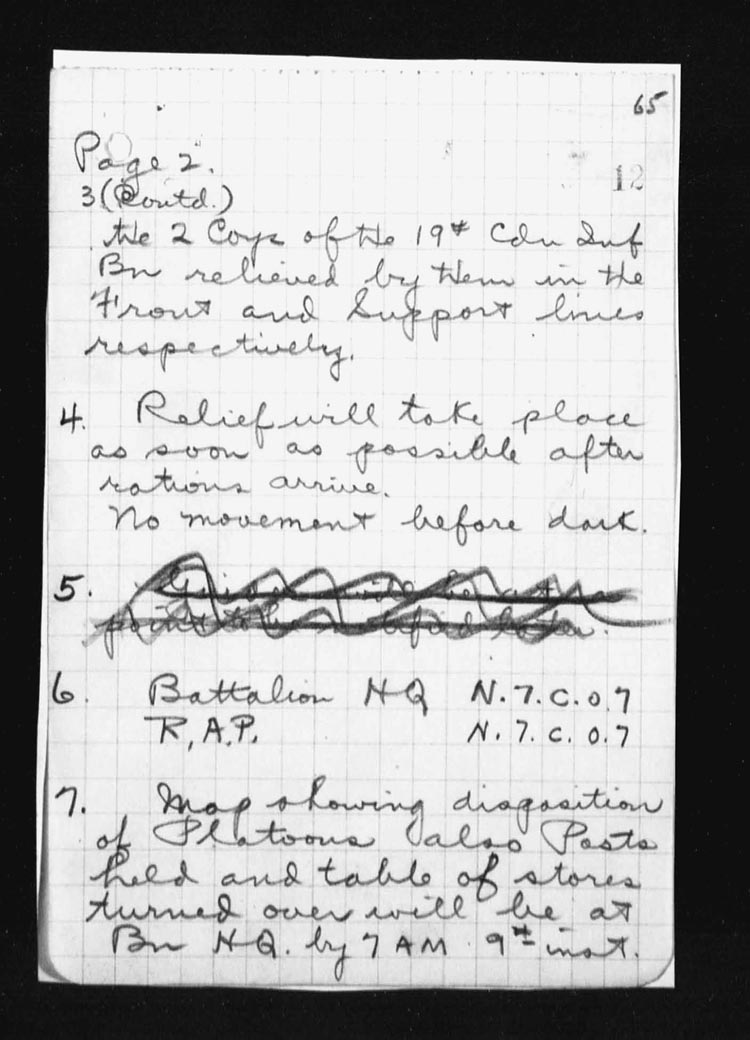 65
12
Page 2.
3 (Contd.)
the 2 Coys of the 19th Cdn Inf
Bn relieved by them in the
Front and Support lines
respectively.
4. Relief will take place
as soon as possible after
rations arrive.
No movement before dark.
5. will be at
point to be notified later.
6. Battalion HQ N.7.c.0.7
R.A.P. N.7.c.0.7
7. Map showing disposition
of Platoons also Posts
held and table of stores
turned over will be at
Bn HQ. by 7 AM 9th inst.